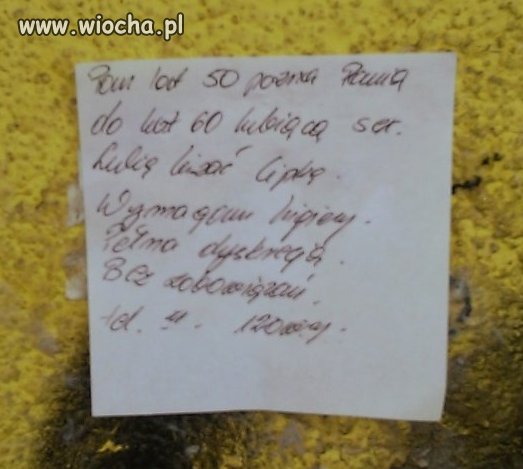 www.wiocha.pl
Pan lat 50 pozna Panią
do lat 60 lubiącą sex.
Lubię lizać cipkę.
Wymagam higieny.
Pełna dyskrecja.
Bez zobowiązań.
tel.